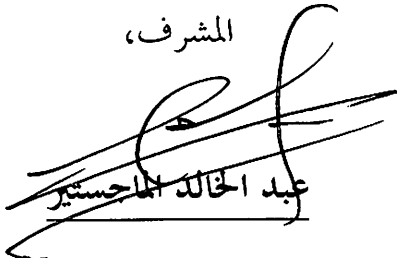 المشرف،
عبد الخالد الماجستير